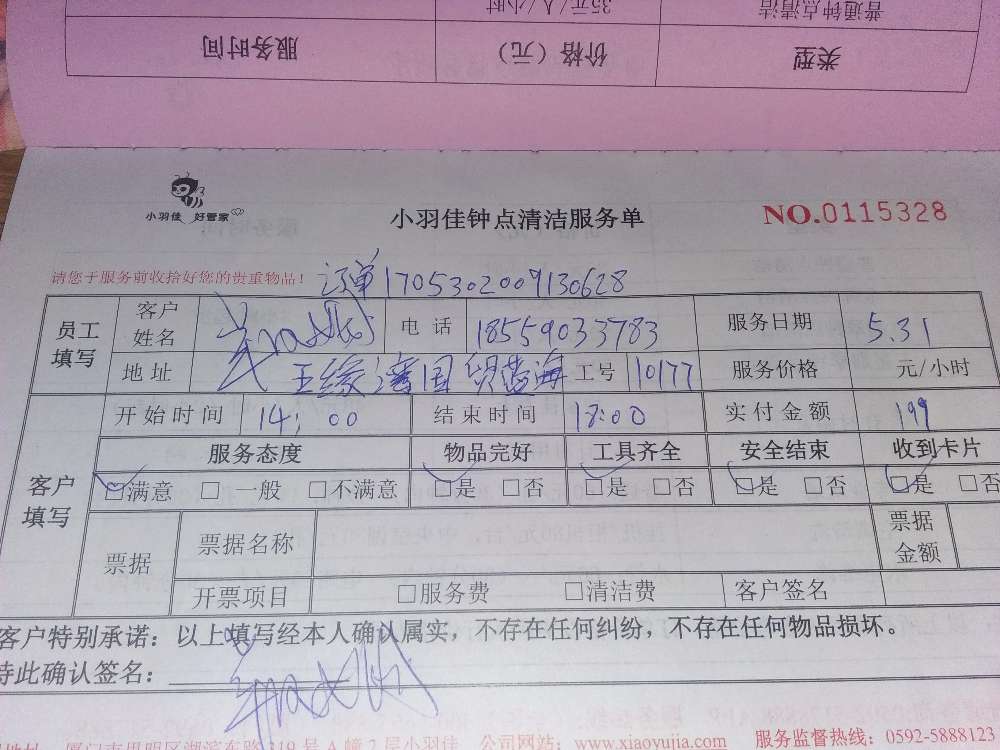 普通钟点清洁 35元/人/小时
类型 价格（元） 服务时间
小羽佳 好管家
小羽佳钟点清洁服务单
NO.0115328
请您于服务前收拾好您的贵重物品！
订单1705302009130628
员工填写 客户姓名 电话 18559033783 服务日期 5.31
地址 国贸蓝海 工号 110177 服务价格 元/小时
开始时间 14:00 结束时间 18:00 实付金额 199
客户填写 服务态度 物品完好 工具齐全 安全结束 收到卡片
☑满意 □一般 □不满意 ☑是 □否 ☑是 □否 ☑是 □否 ☑是 □否
票据 票据名称 票据金额
开票项目 □服务费 □清洁费 客户签名
客户特别承诺：以上填写经本人确认属实，不存在任何纠纷，不存在任何物品损坏。
特此确认签名：
厦门市思明区湖滨东路319号A幢2层小羽佳 公司网站：www.xiaoyujia.com 服务监督热线：0592-5888123